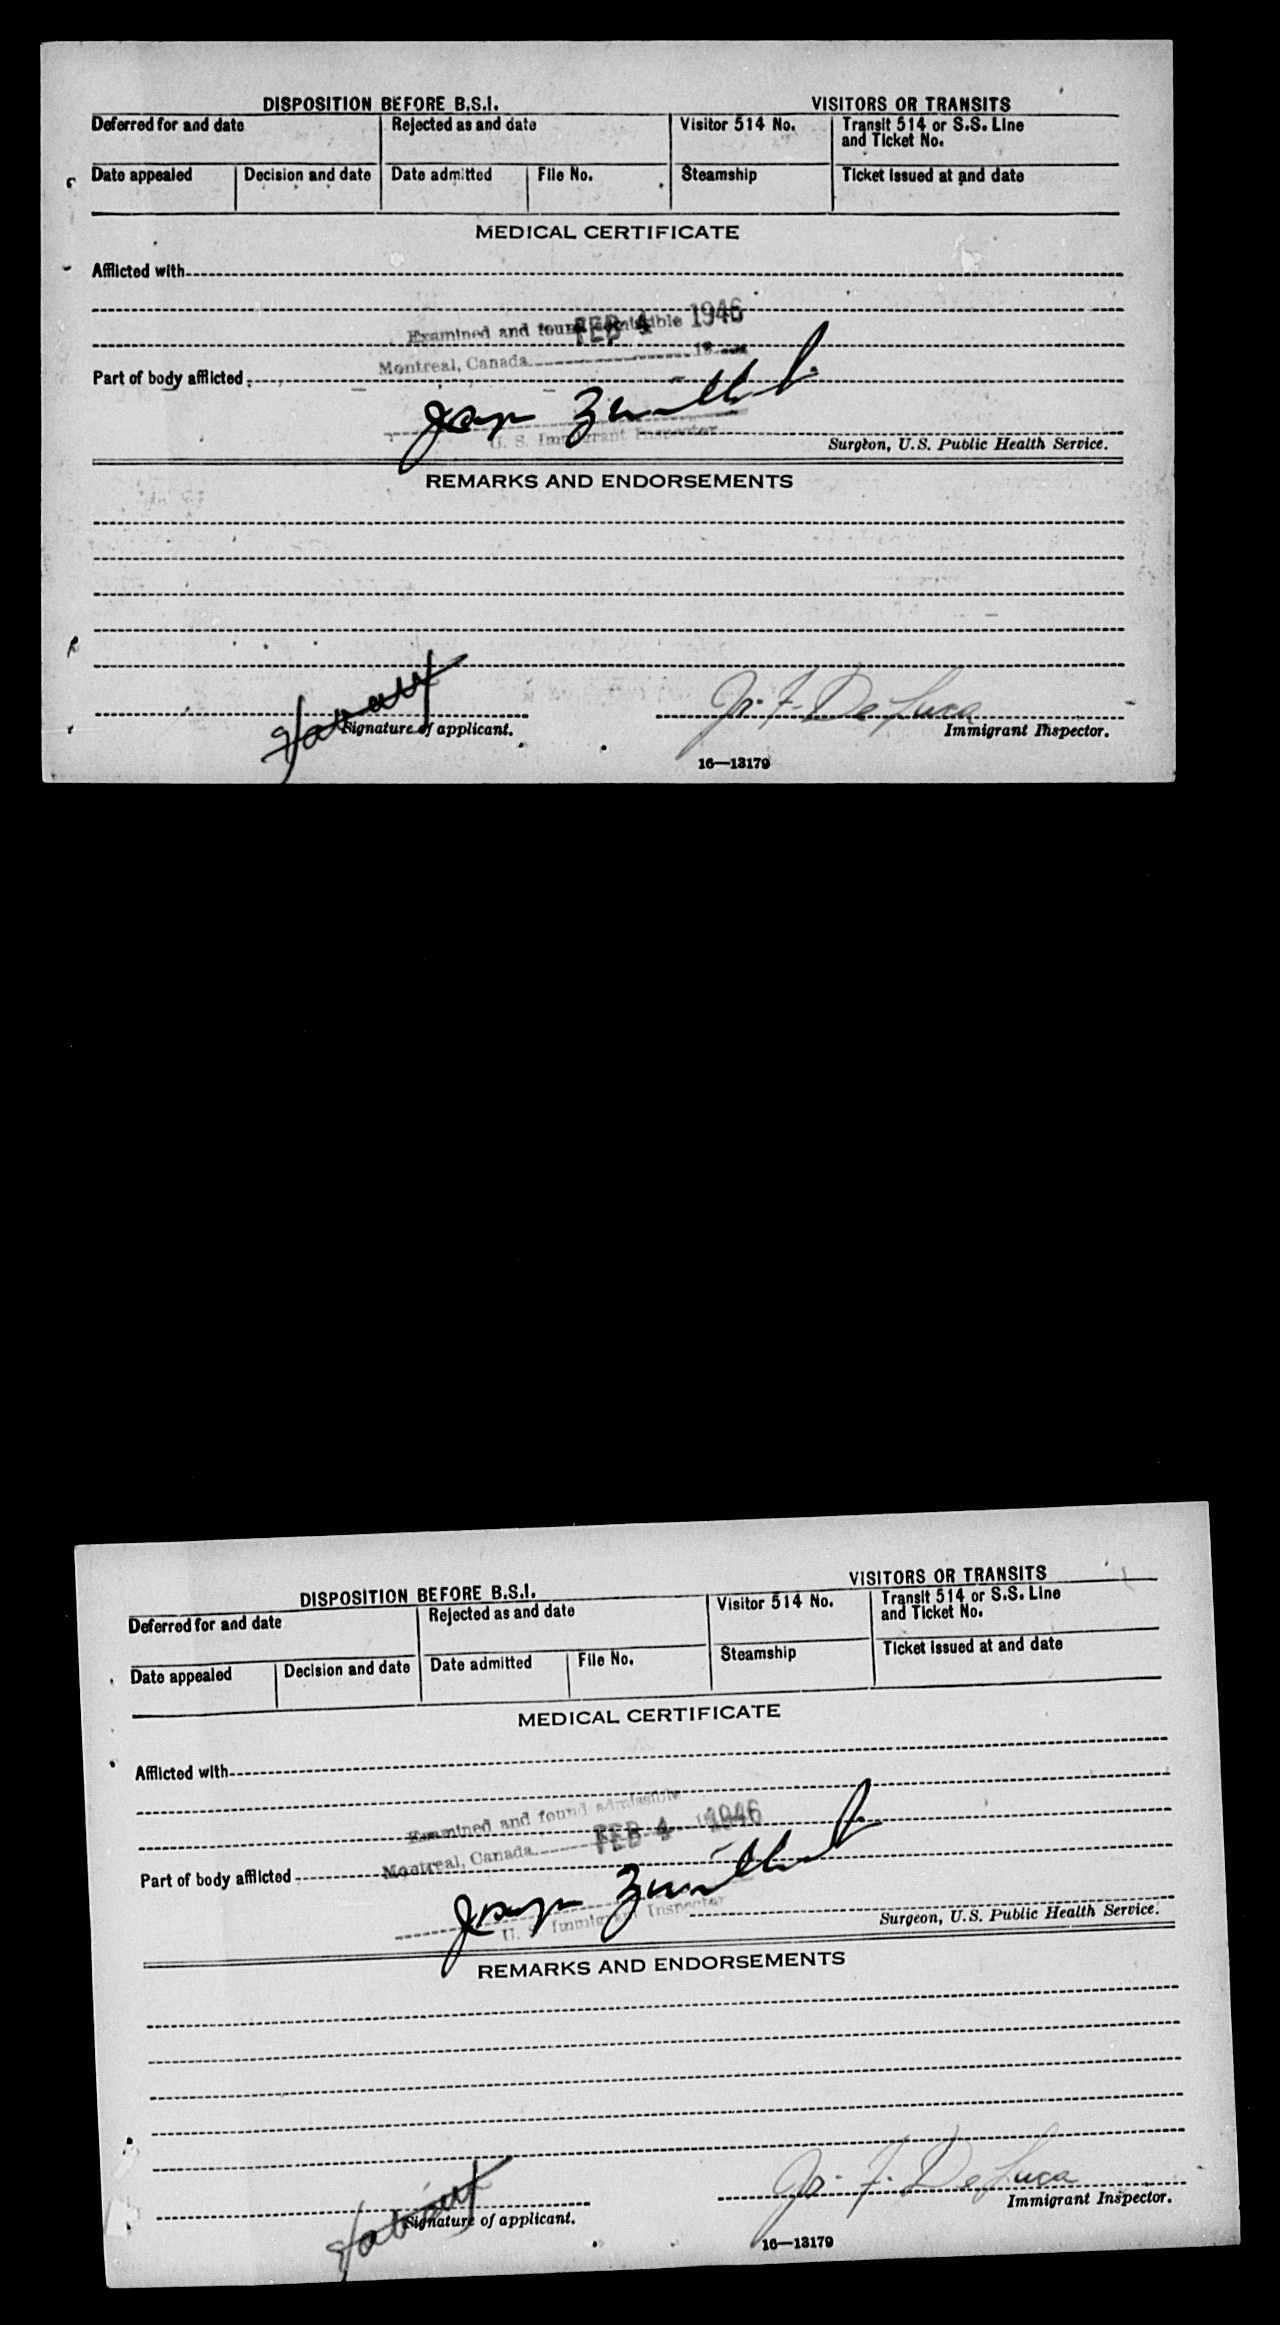 DISPOSITION BEFORE B.S.I. VISITORS OR TRANSITS
Deferred for and date Rejected as and date Visitor 514 No. Transit 514 or S.S. Line
and Ticket No.
Date appealed Decision and date Date admitted File No. Steamship Ticket issued at and date
MEDICAL CERTIFICATE
Afflicted with
Examined and found admissible FEB 4 1946
Montreal, Canada 19
Part of body afflicted
U. S. Immigrant Inspector
Surgeon, U.S. Public Health Service.
REMARKS AND ENDORSEMENTS
Jr. F. De Luca
Signature of applicant. Immigrant Inspector.
16—13179
DISPOSITION BEFORE B.S.I. VISITORS OR TRANSITS
Deferred for and date Rejected as and date Visitor 514 No. Transit 514 or S.S. Line
and Ticket No.
Date appealed Decision and date Date admitted File No. Steamship Ticket issued at and date
MEDICAL CERTIFICATE
Afflicted with
Examined and found admissible
Montreal, Canada FEB 4 1946
Part of body afflicted
U. S. Immigrant Inspector
Surgeon, U.S. Public Health Service.
REMARKS AND ENDORSEMENTS
Jr. F. De Luca
Signature of applicant. Immigrant Inspector.
16—13179